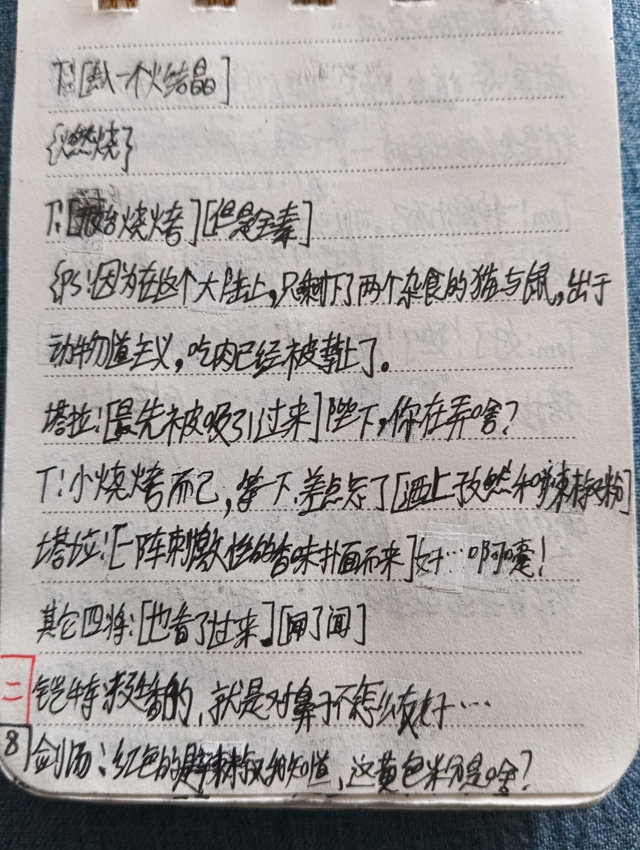 T:[敲一个火结晶]
{燃烧}
T:[开始烧烤][但是全素]
{PS:因为在这个大陆上,只剩下了两个杂食的猫与鼠,出于
动物道主义,吃肉已经被禁止了。
塔拉:[最先被吸引过来]陛下,你在弄啥?
T:小烧烤而已,等下.差点忘了[洒上孜然和辣椒粉]
塔拉:[一阵刺激性的香味扑面而来]好…啊嚏!
其它四将:[也看了过来][闻了闻]
铠牛:挺香的,就是对鼻子不怎么友好…
剑汤:红色的是辣椒我知道,这黄色米分是啥?
二
8